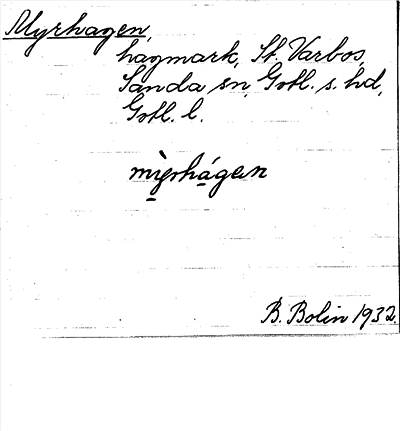 Myrhagen,
hagmark, St. Varbos,
Sanda sn, Gotl. s. hd,
Gotl. l.
mỳrhágen
B. Bolin 1932.